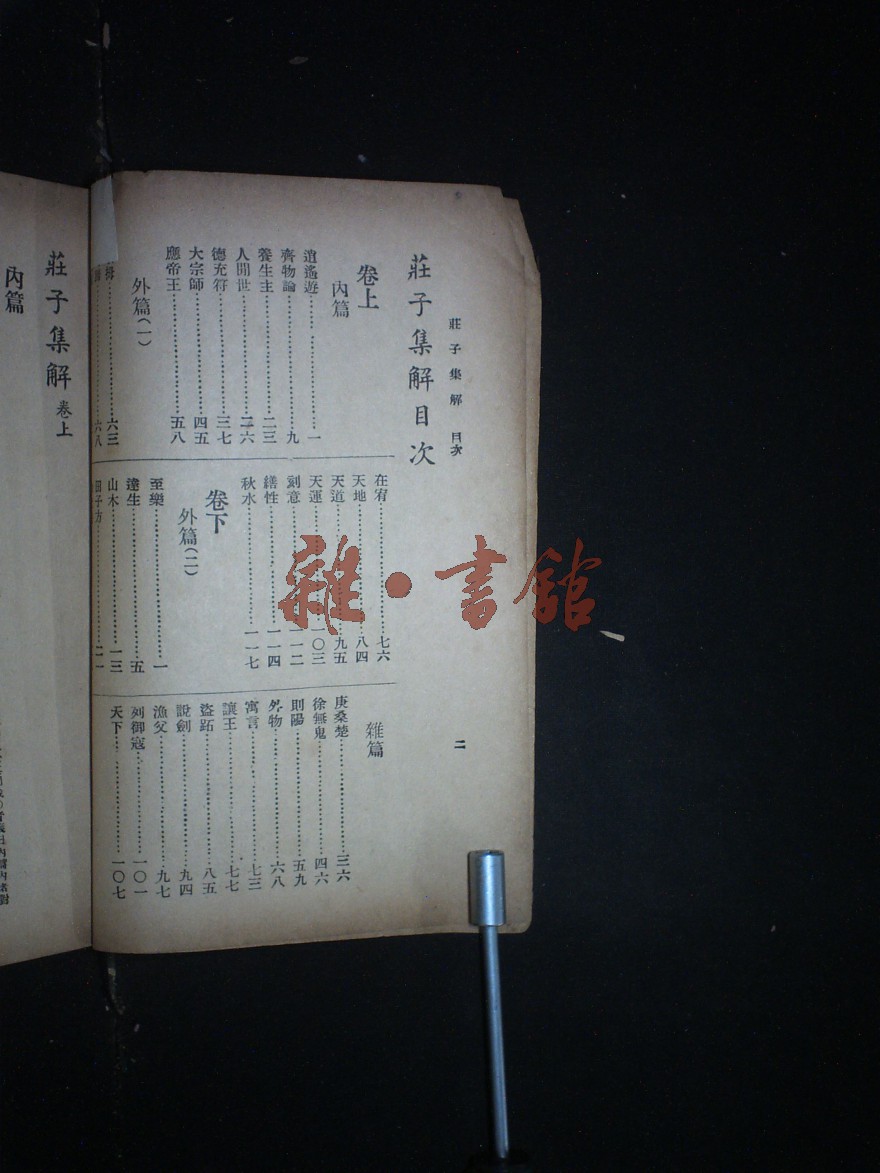 莊子集解 目次
二
莊子集解目次
卷上
內篇
逍遙遊……一
齊物論……九
養生主……二三
人間世……二六
德充符……三七
大宗師……四五
應帝王……五八
外篇(一)
拇……六三
六八
在宥……七六
天地……八四
天道……九五
天運……一〇三
刻意……一一二
繕性……一一四
秋水……一一七
卷下
外篇(二)
至樂……一
達生……五
山木……一三
田子方……二一
雜篇
庚桑楚……三六
徐無鬼……四六
則陽……五九
外物……六八
寓言……七三
讓王……七七
盜跖……八五
說劍……九四
漁父……九七
列御寇……一〇一
天下……一〇七
莊子集解 卷上
內篇
雜·書館